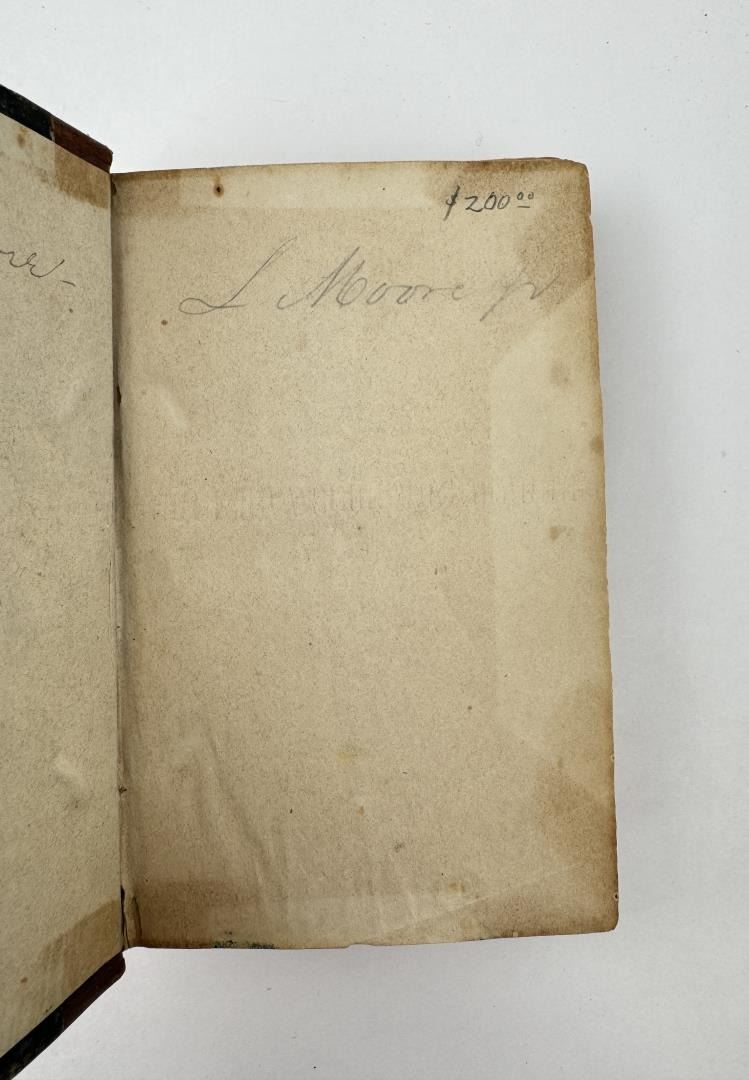 $200.00
L Moore Jr